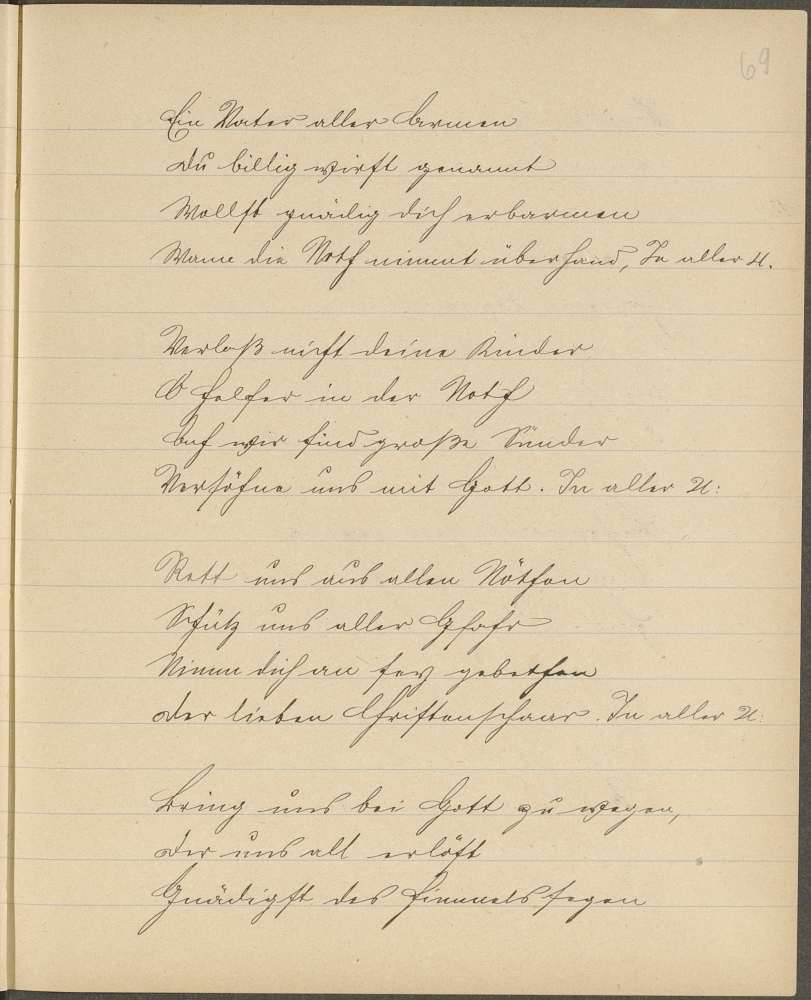 69
Ein Vater aller Armen
du billig wirst genannt
Wollst gnädig dich erbarmen
Wann die Noth nimmt überhand, In aller U.
Verlaß nicht deine Kinder
O Helfer in der Noth
Auch wir sind große Sünder
Versöhne uns mit Gott. In aller U:
Rett uns aus allen Nöthen
Schütz uns aller Gfahr
Nimm dich an sey gebethen
der lieben Christenschaar. In aller U:
Bring uns bei Gott zu wegen,
der uns all erlößt
Gnädigst des Himmels segen